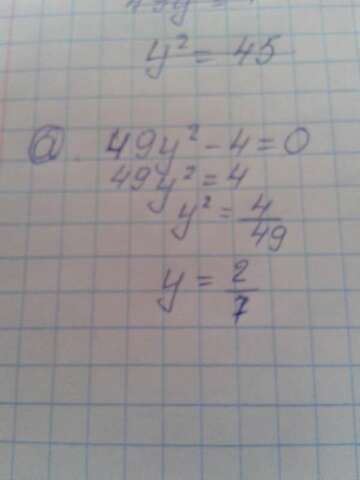 49y
y² = 45
a. 49y² - 4 = 0
49y² = 4
y² = 4/49
y = 2/7